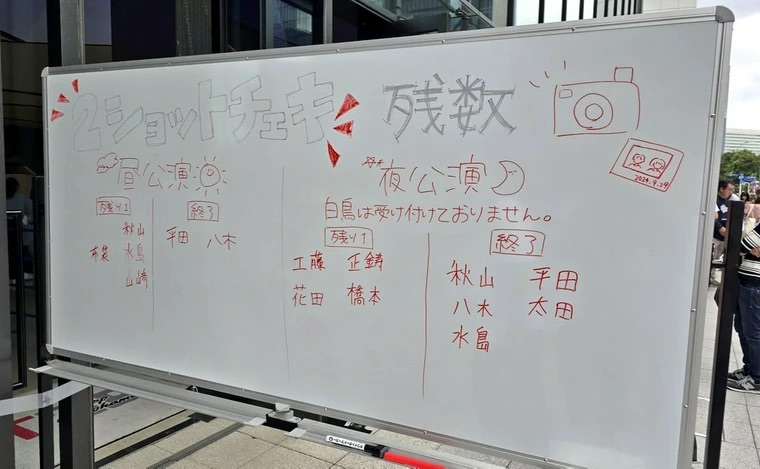 2ショットチェキ 残数
2024.9.29
昼公演
残り1
秋山
布袋 水島
山崎
終了
平田 八木
夜公演
白鳥は受け付けておりません。
残り1
工藤 正鋳
花田 橋本
終了
秋山 平田
八木 太田
水島